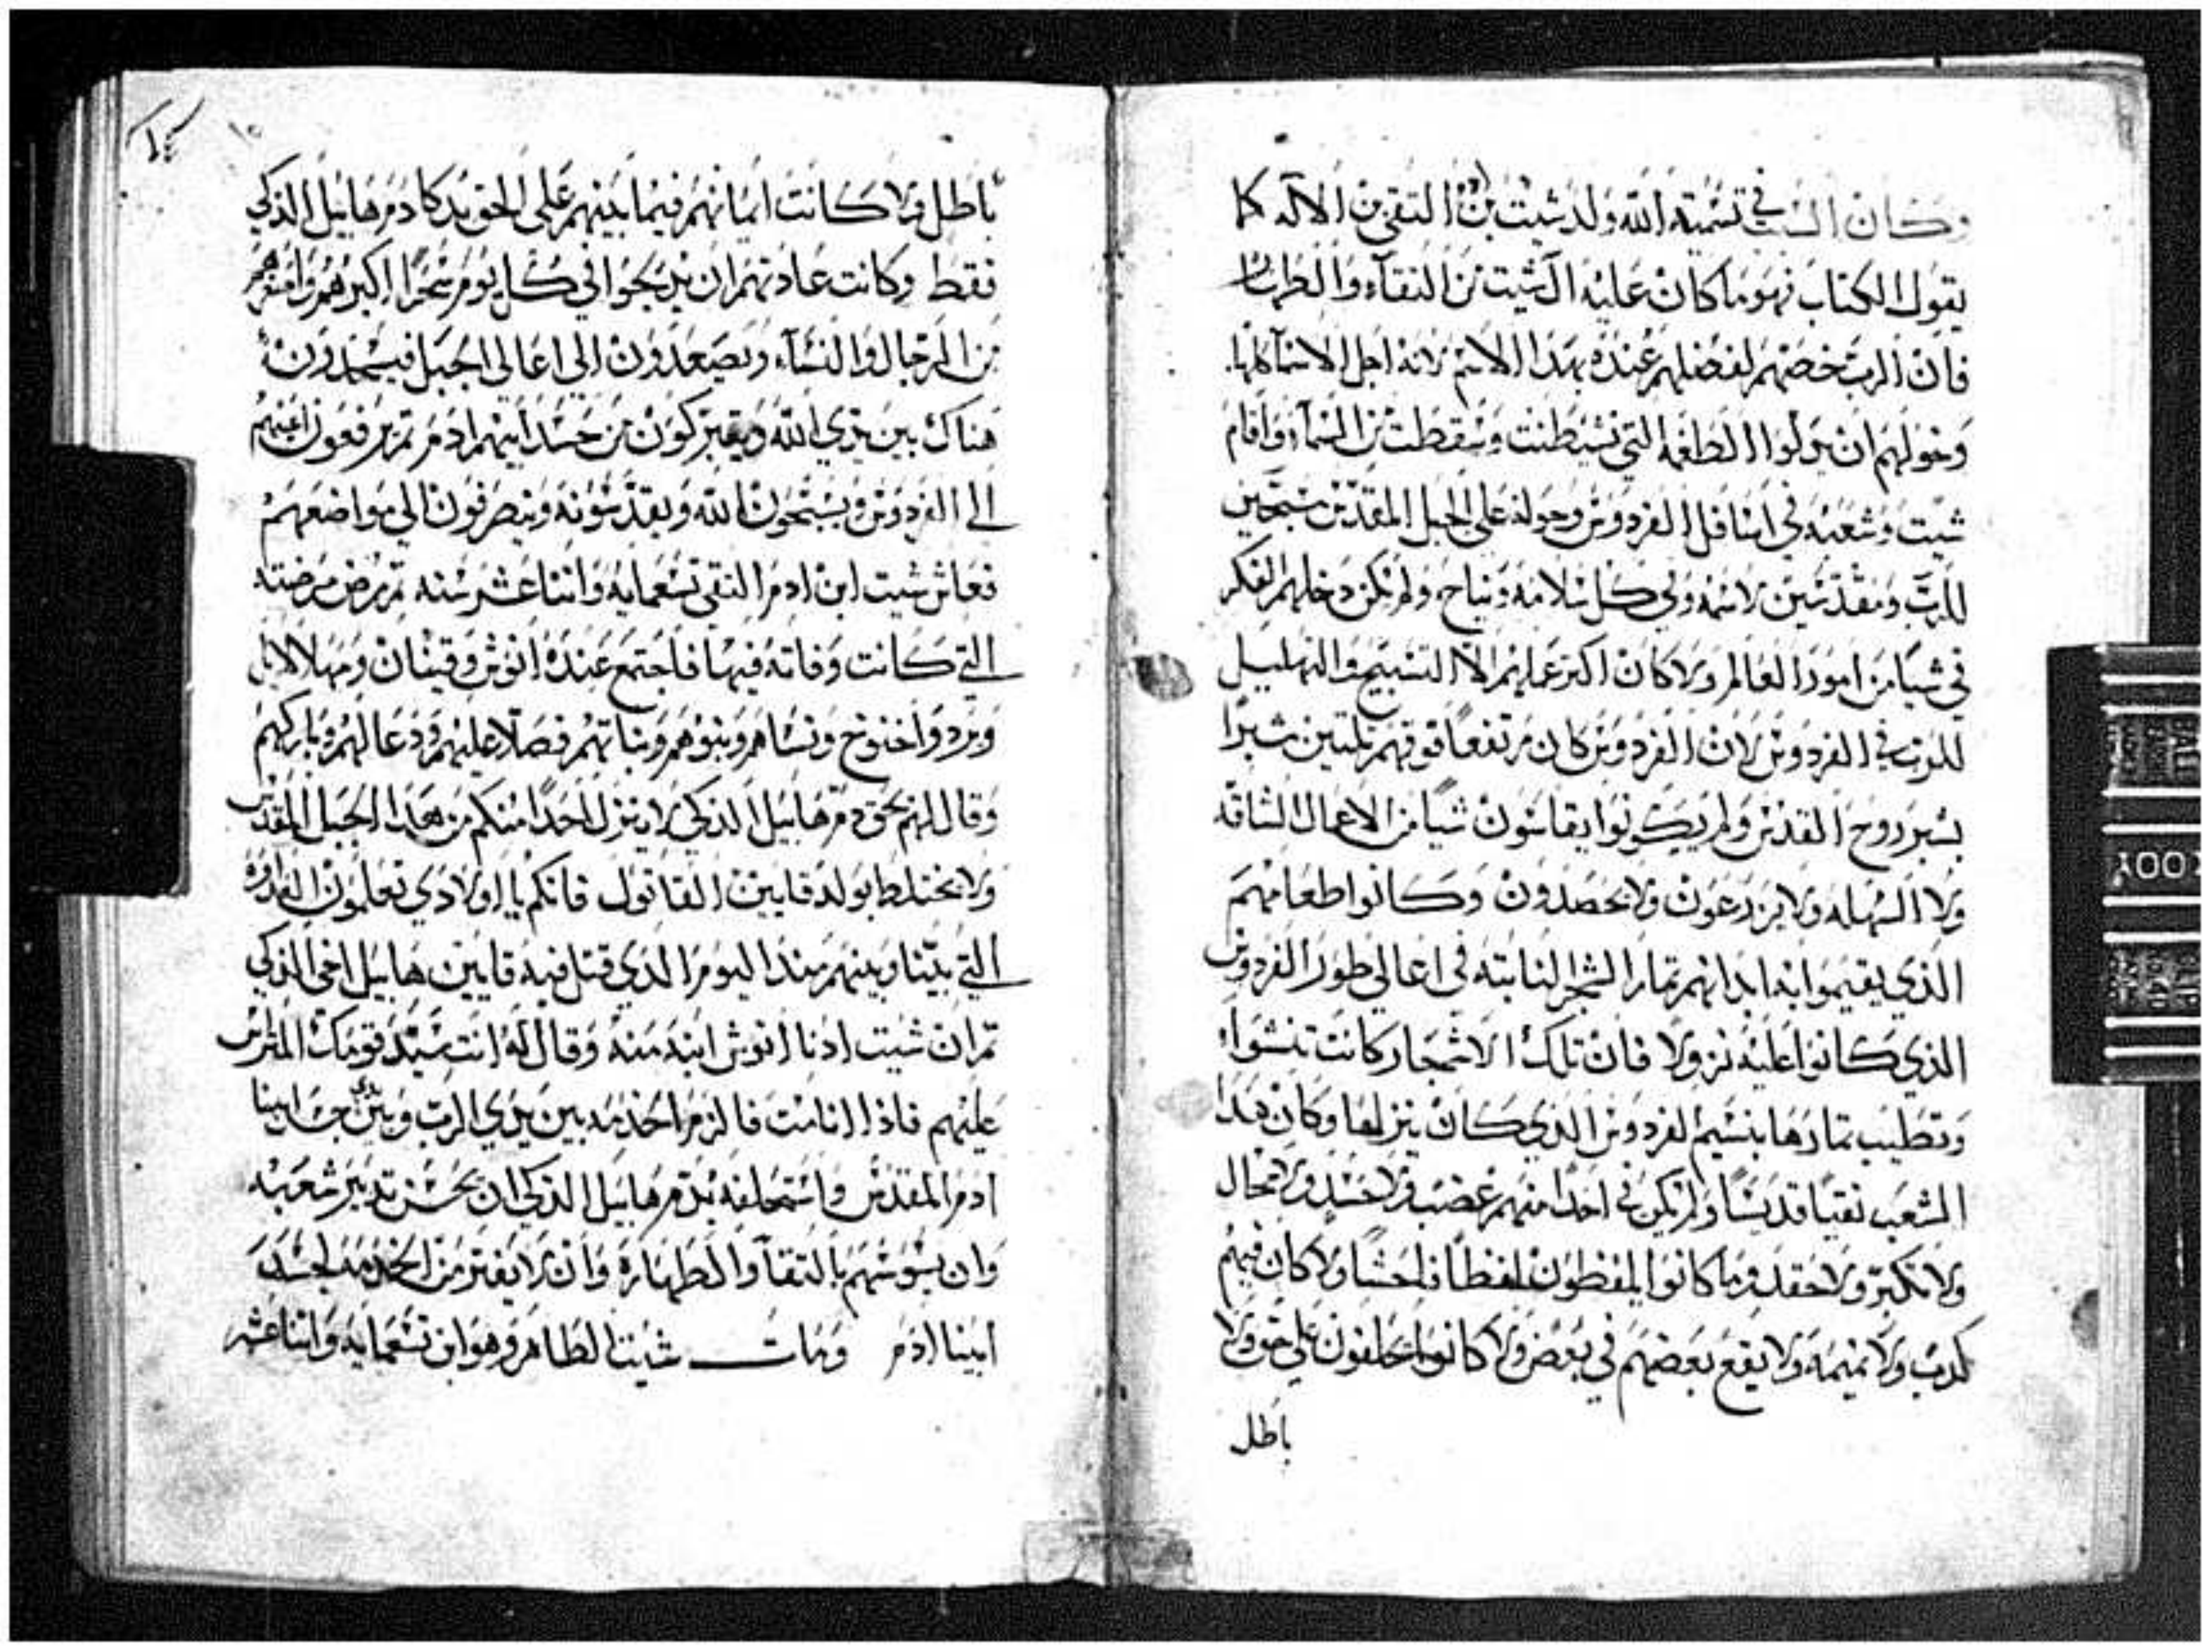 وكان السبب في تسمية الله ولد شيت بن ادم التقي بن الاله كما
يقول الكتاب فهو ما كان عليه ال شيت من النقاء والطهارة
فان الرب خصهم لفضلهم عنده بهدا الاسم لانه اجل الاسما كلها
وخولهم ان يولوا الطغمه التي تشيطنت وسقطت من السماء واقام
شيت وشعبه في اسافل الفردوس وحوله على الجبل المقدس مسبحين
للرب ومقدسين لاسمه وفي كل سلامه ونياح ولم يكن دخلهم الفكر
في شيا من امور العالم ولا كان اكبر عملهم الا التسبيح والتهليل
للرب في الفردوس لان الفردوس كان مرتفعا فوقهم تلتين شبرا
بشبر روح القدس ولم يكونوا يقاسون شيا من الاعمال الشاقه
ولا السهله ولا يزرعون ولا يحصدون وكانوا طعامهم
الذي يقيموا به ابدانهم تمار الشجر النابته في اعالي طور الفردوس
الذي كانوا عليه نزولا فان تلك الاشجار كانت تنشوا
وتطيب تمارها بنسيم الفردوس الذي كان ينزلها وكان هدا
الشعب نقيا قديسا ولم يكن في احدا منهم غضب ولا حسد ولا محال
ولا تكبر ولا حقد وما كانوا يلفظون لفظا فاحشا ولا كان فيهم
كدب ولا نميمه ولا يقع بعضهم في بعض ولا كانوا يحلفون على حق ولا
باطل
باطل ولا كانت ايمانهم فيما بينهم على الحق بدكا دم هابيل الذكي
فقط وكانت عادتهم ان يدلجوا في كل يوم سحرا اكبرهم واصغرهم
من الرجال والنساء ويصعدون الى اعالي الجبل فيسجدون
هناك بين يدي الله ويتبركون من جسد ابيهم ادم تم يرفعون اعينهم
الى الفردوس ويسبحون الله ويقدسونه وينصرفون الى مواضعهم
فعاش شيت ابن ادم التقي تسعمايه واتنا عشر سنه تم مرض مرضته
التي كانت وفاته فيها فاجتمع عنده انوش وقينان ومهلالايل
ويرد واخنوخ ونساهم وبنوهم وبناتهم فصلا عليهم ودعا لهم وباركهم
وقال لهم بحق دم هابيل الذكي لا ينزل احدا منكم من هدا الجبل المقدس
ولا يختلط بولد قايين القاتول فانكم يا اولادي تعلمون العداوه
التي بيننا وبينهم مند اليوم الذي قتل فيه قايين هابيل اخي الذكي
تم ان شيت ادنا انوش ابنه منه وقال له انت سيد قومك المتراس
عليهم فاذا انا مت فالزم الخدمه بين يدي الرب وبين يدي جسد ابينا
ادم المقدس واستحلفه بدم هابيل الذكي ان يحسن تدبير شعبه
وان يسوسهم بالنقا والطهاره وان لا يفتر من الخدمه لجسد
ابينا ادم ومات شيت الطاهر وهو ابن تسعمايه واتنا عشر